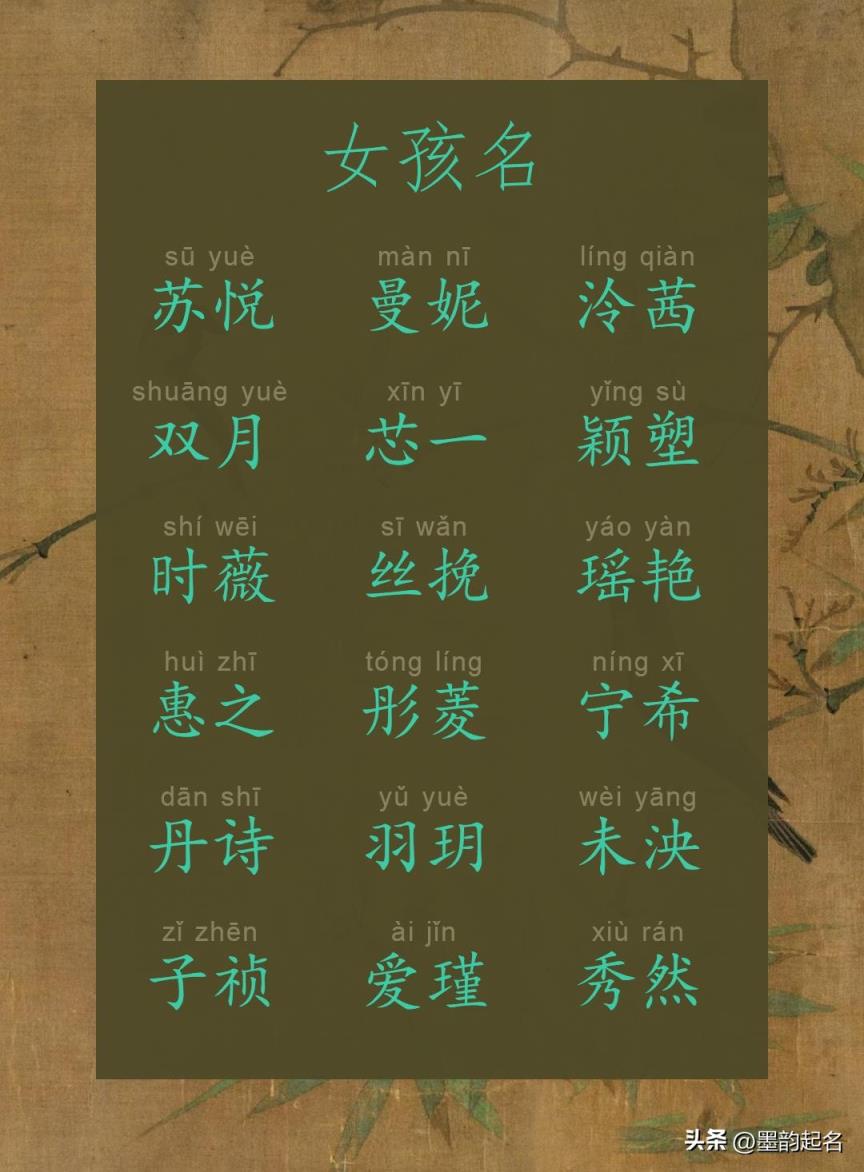 女孩名
sū yuè màn nī líng qiàn
苏悦 曼妮 泠茜
shuāng yuè xīn yī yǐng sù
双月 芯一 颖塑
shí wēi sī wǎn yáo yàn
时薇 丝挽 瑶艳
huì zhī tóng líng níng xī
惠之 彤菱 宁希
dān shī yǔ yuè wèi yāng
丹诗 羽玥 未泱
zǐ zhēn ài jǐn xiù rán
子祯 爱瑾 秀然
头条 @墨韵起名